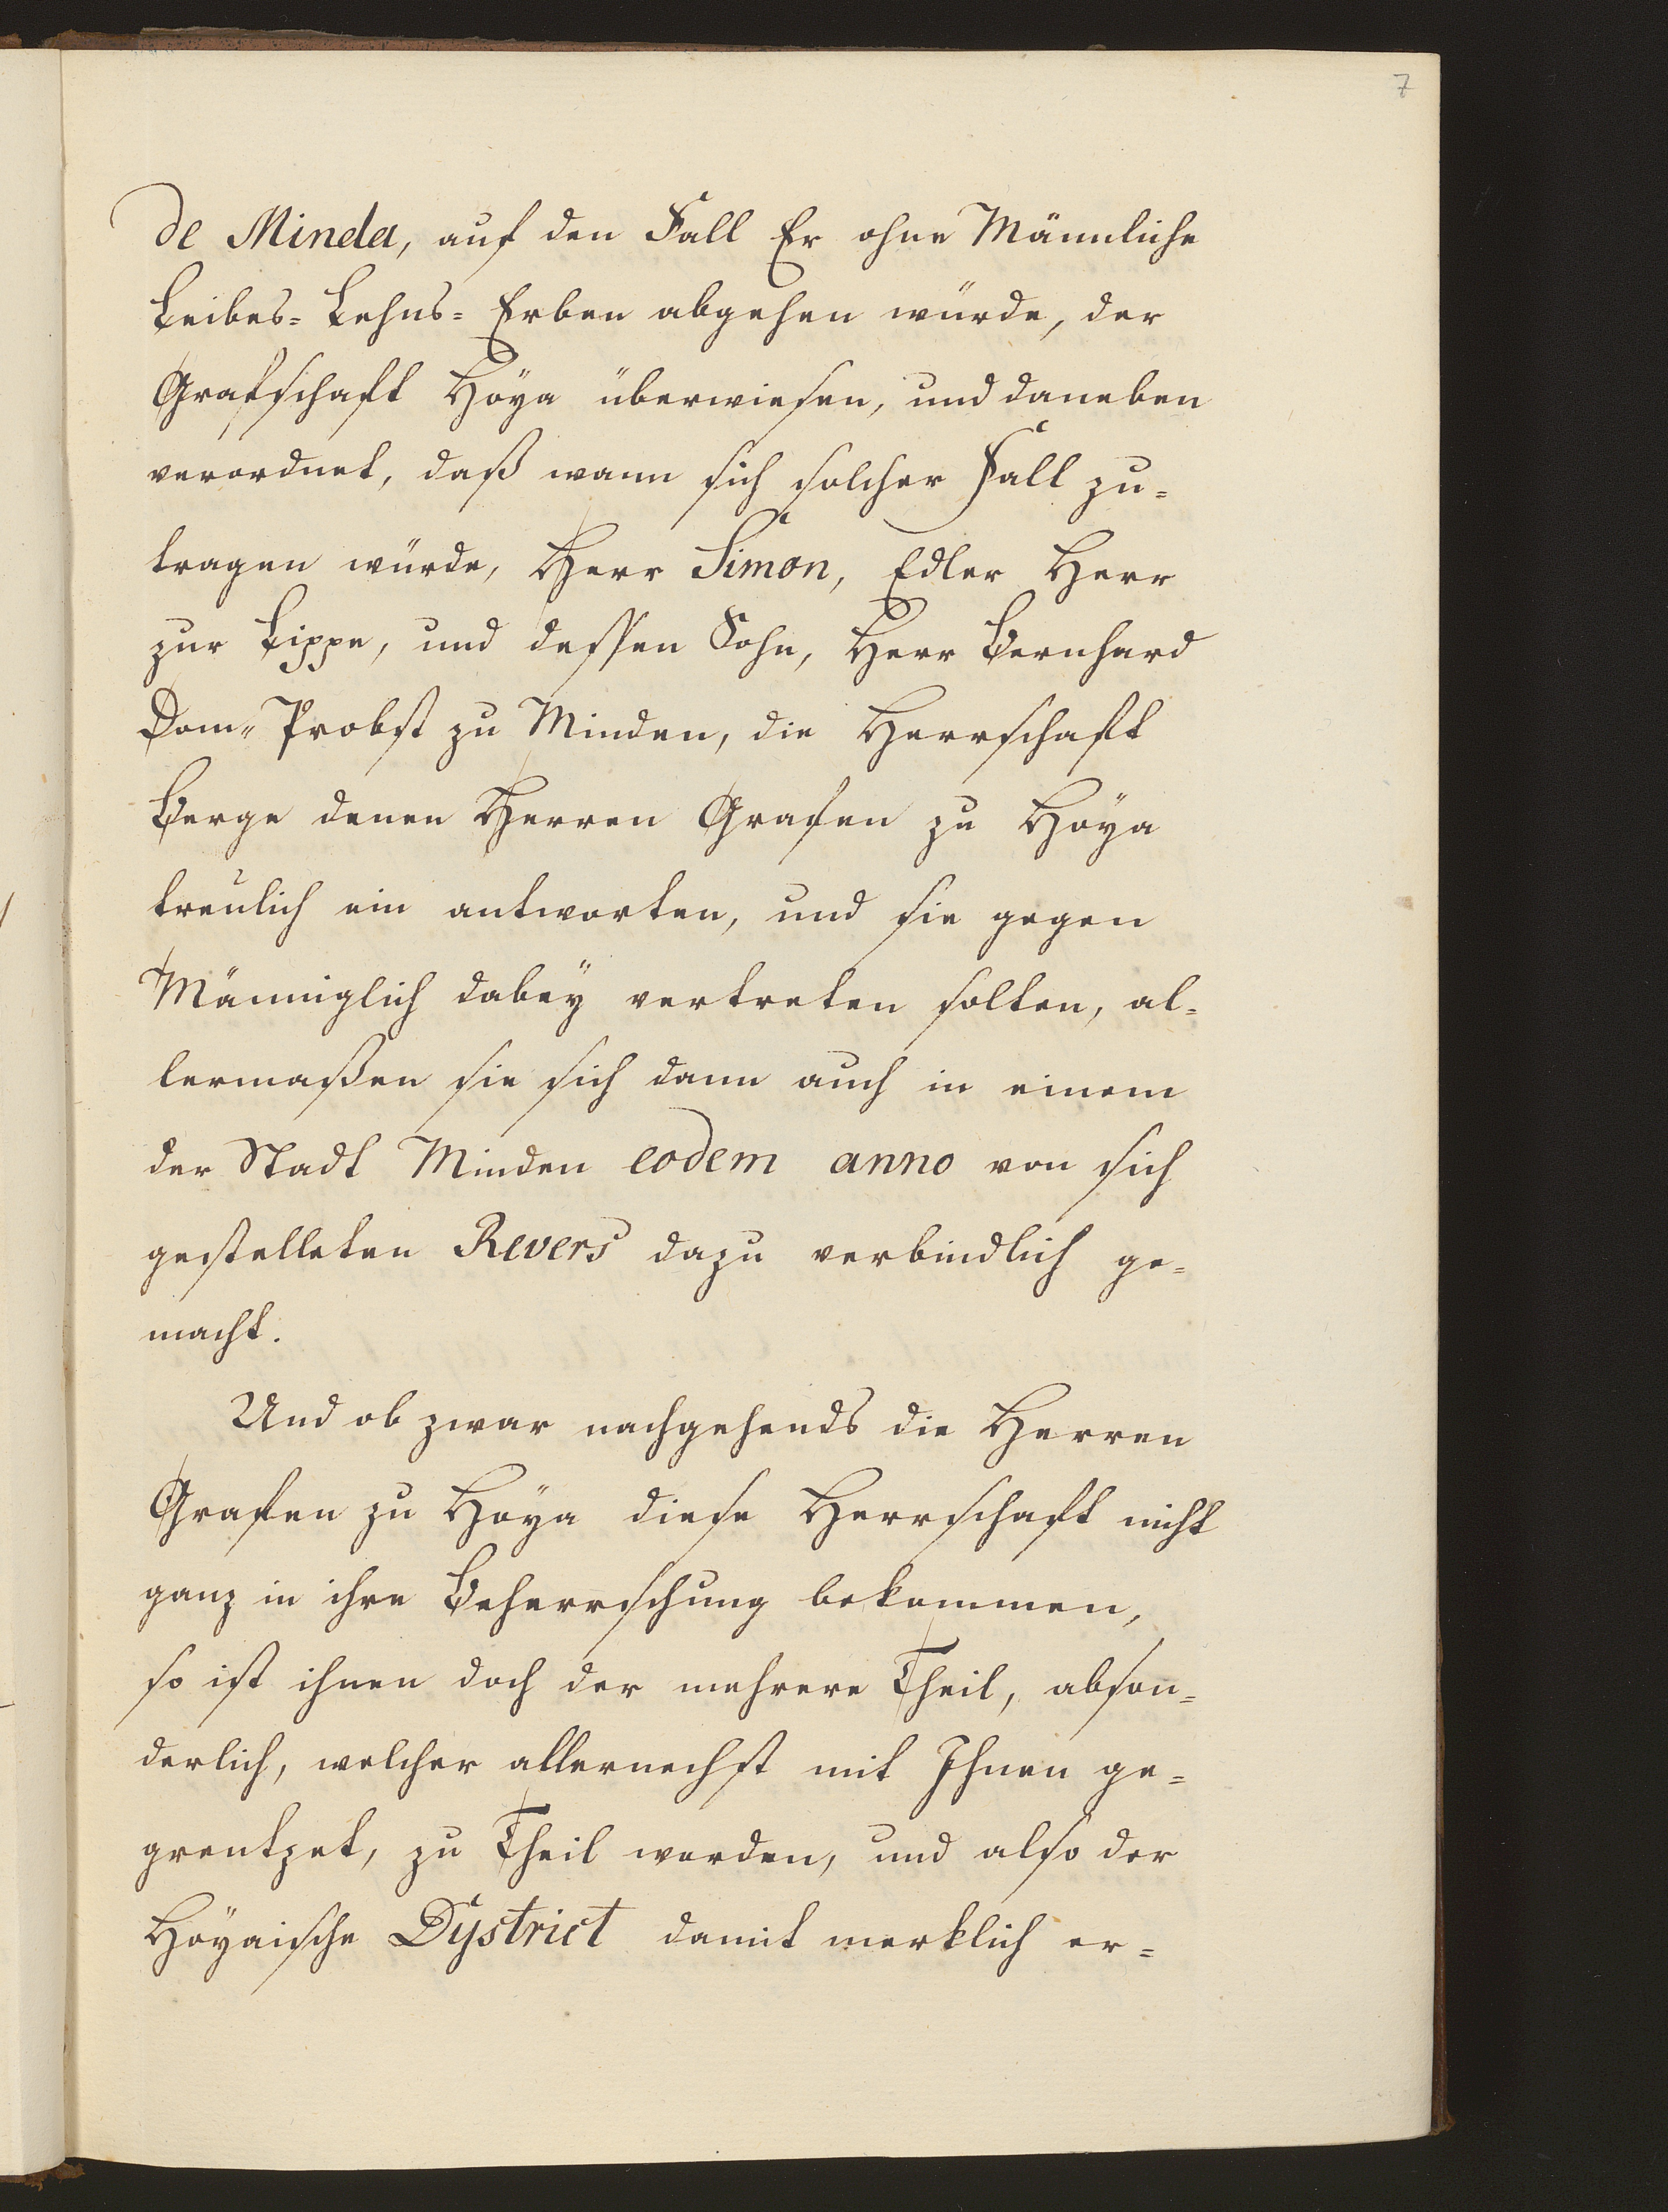 7
de Minda, auf den Fall Er ohne Männliche
Leibes= Lehns= Erben abgehen würde, der
Grafschaft Hoÿa überwiesen, und daneben
verordnet, daß wann sich solcher Fall zu=
tragen würde, Herr Simon, Edler Herr
zur Lippe, und dessen Sohn, Herr Bernhard
Dom= Probst zu Minden, die Herrschaft
Berge denen Herren Grafen zu Hoÿa
treulich ein antworten, und sie gegen
Männiglich dabeÿ vertreten solten, al=
lermaßen sie sich dann auch in einem
der Stadt Minden eodem anno von sich
gestelleten Revers dazu verbindlich ge=
macht.
Und ob zwar nachgehends die Herren
Grafen zu Hoÿa diese Herrschaft nicht
ganz in ihre Beherrschung bekommen,
so ist ihnen doch der mehrere Theil, abson=
derlich, welcher allernechst mit Ihnen ge=
grentzet, zu Theil worden, und also der
Hoÿaische Dystrict damit merklich er=